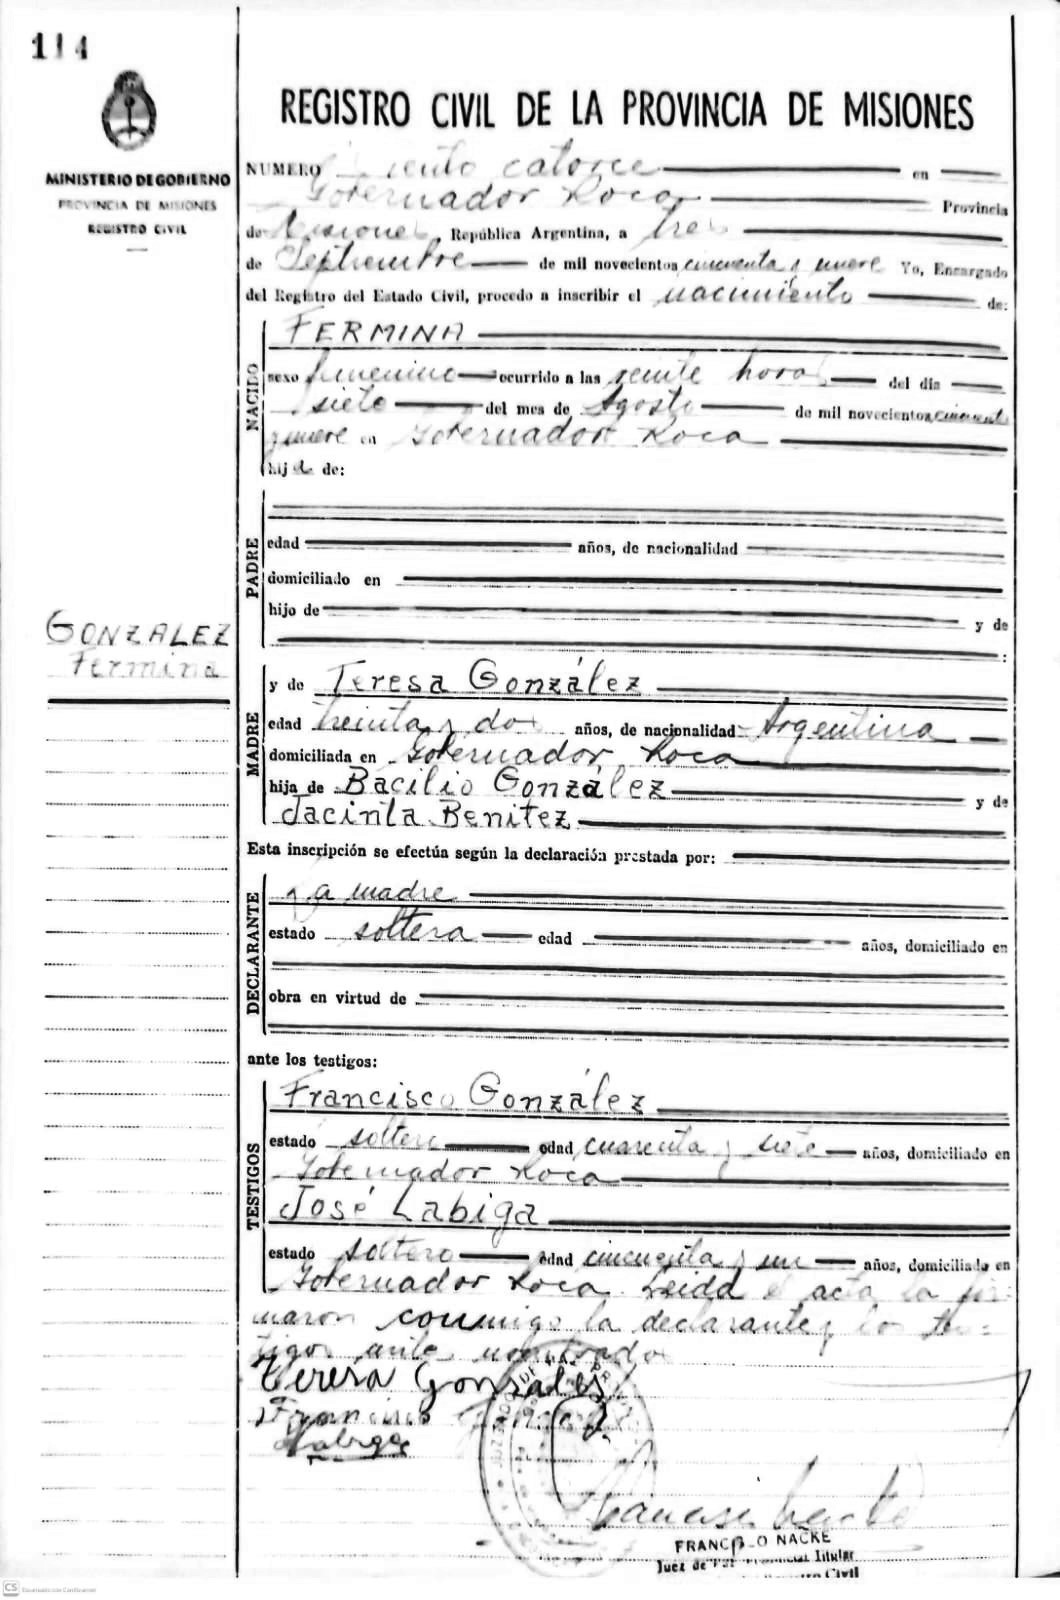 114
MINISTERIO DE GOBIERNO
PROVINCIA DE MISIONES
REGISTRO CIVIL
REGISTRO CIVIL DE LA PROVINCIA DE MISIONES
NUMERO ciento catorce en
Gobernador Roca Provincia
de Misiones, República Argentina, a tres
de Septiembre de mil novecientos cincuenta y nueve Yo, Encargado
del Registro del Estado Civil, procedo a inscribir el nacimiento de:
NACIDO
FERMINA
sexo femenino ocurrido a las veinte horas del dia
siete del mes de Agosto de mil novecientos cincuenta
y nueve en Gobernador Roca
hija de:
PADRE
edad años, de nacionalidad
domiciliado en
hijo de y de
:
GONZALEZ
Fermina
MADRE
y de Teresa González
edad treinta y dos años, de nacionalidad Argentina
domiciliada en Gobernador Roca
hija de Bacilio González y de
Jacinta Benitez
Esta inscripción se efectúa según la declaración prestada por:
DECLARANTE
La madre
estado soltera edad años, domiciliado en
obra en virtud de
ante los testigos:
TESTIGOS
Francisco González
estado soltero edad cuarenta y siete años, domiciliado en
Gobernador Roca
José Labiga
estado soltero edad cincuenta y un años, domiciliado en
Gobernador Roca Leida el acta la fir
maron conmigo la declarante y los tes=
tigos ante nombrados
Teresa Gonzales
Francisco
Labiga
FRANCISCO NACKE
Juez de Paz Provincial Titular
Registro Civil
CS Escaneado con CamScanner